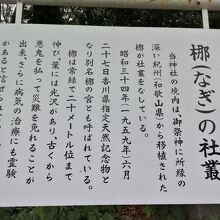 梛(なぎ)の社叢
当神社の境内は御祭神に所縁の
深い紀州(和歌山県)から移植された
梛が社叢をなしている。
昭和三十四年(一九五九年)六月
二十七日香川県指定天然記念物と
なり別名梛の宮とも呼ばれている。
梛は常緑で二十メートル位まで
伸び、葉には光沢があり、古くから
悪鬼を払って災難を免れることが
出来、さらに病気の治療にも霊験
があると